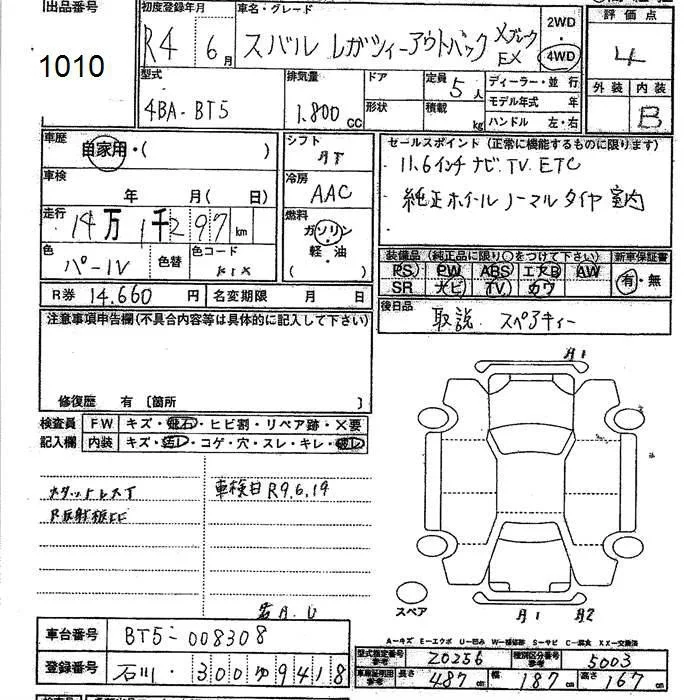 出品番号
1010
初度登録年月
R4 6月
車名・グレード
スバル レガシィーアウトバック Xブレーク EX
2WD
4WD
評価点
4
外装 内装
B
型式
4BA-BT5
排気量
1.800cc
ドア
形状
定員
5人
積載
kg
ディーラー・並行
モデル年式 年
ハンドル 左・右
車歴
自家用・( )
車検
年 月( 日)
走行
14万1千297km
色
パールV
色替
色コード
K1X
シフト
AT
冷房
AAC
燃料
ガソリン
軽・油
( )
セールスポイント (正常に機能するものに限ります)
11.6インチ ナビ.TV. ETC
純正ホイール ノーマルタイヤ 室内
装備品 (純正品に限り○をつけて下さい)
PS PW ABS エアB AW
SR ナビ TV カワ
新車保証書
有・無
R券 14.660円
名変期限 月 日
後日品
取説 スペアキィー
注意事項申告欄(不具合内容等は具体的に記入して下さい)
修復歴 有 〔箇所 〕
検査員
記入欄
FW キズ・飛石・ヒビ割・リペア跡・×要
内装 キズ・汚レ・コゲ・穴・スレ・キレ・破レ
車検日R9.6.19
R反射板
A1
A.U
スペア
A1 A2
A-キズ E-エクボ U-凹み W-補修跡 S-サビ C-腐食 XX-交換済
車台番号
BT5-008308
登録番号
石川・300ゆ9418
型式指定番号
参考
20256
類別区分番号
参考
5003
車車証明用
参考
長さ 487cm
幅 187cm
高さ 167cm